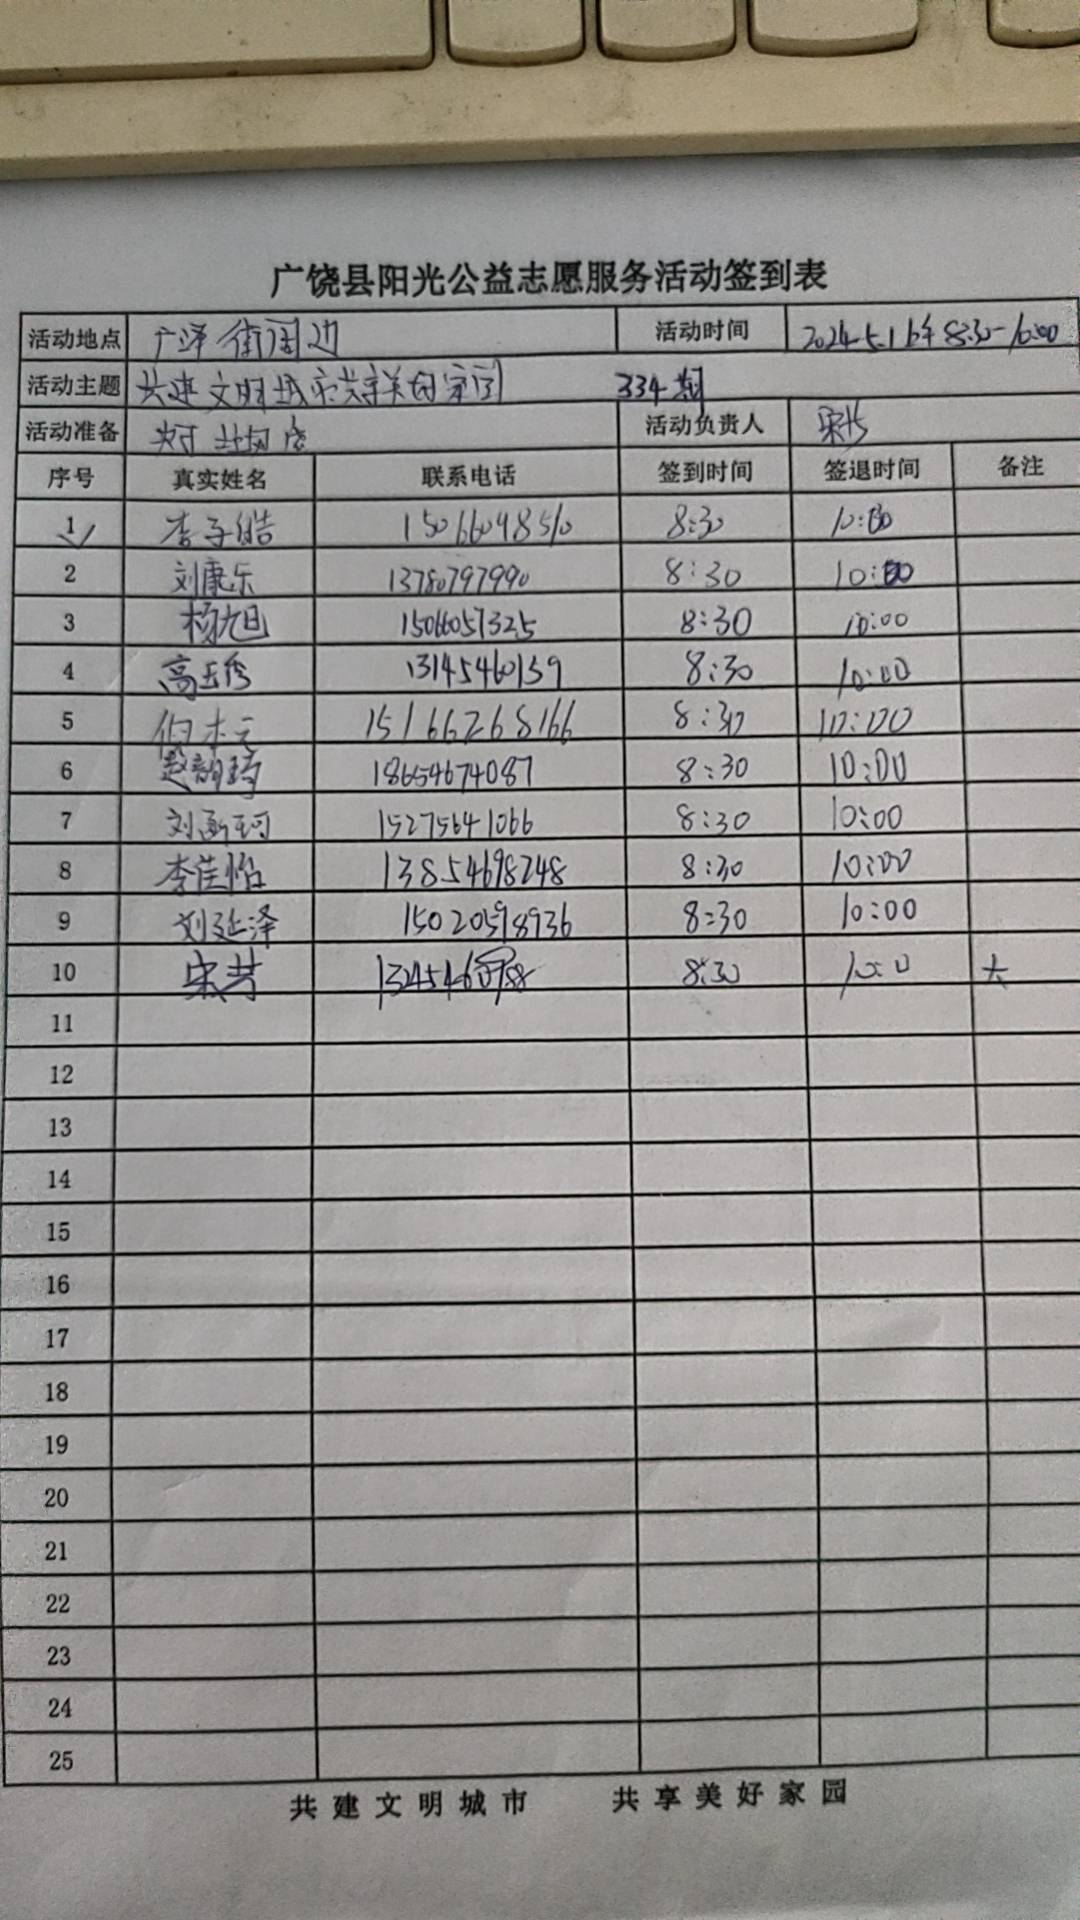 广饶县阳光公益志愿服务活动签到表
活动地点 广泽街周边 活动时间 2024.5.1 8:30-10:00
活动主题 共建文明城市共享美好家园 334期
活动准备 活动负责人
序号 真实姓名 联系电话 签到时间 签退时间 备注
1 李子皓 15066098510 8:30 10:00
2 刘康乐 13780797990 8:30 10:00
3 杨旭 15066057325 8:30 10:00
4 高玉秀 13145460139 8:30 10:00
5 15166268166 8:30 10:00
6 赵韵琦 18654674087 8:30 10:00
7 15275641066 8:30 10:00
8 李佳怡 13854698248 8:30 10:00
9 刘延泽 15020598936 8:30 10:00
10 8:30
11
12
13
14
15
16
17
18
19
20
21
22
23
24
25
共建文明城市 共享美好家园